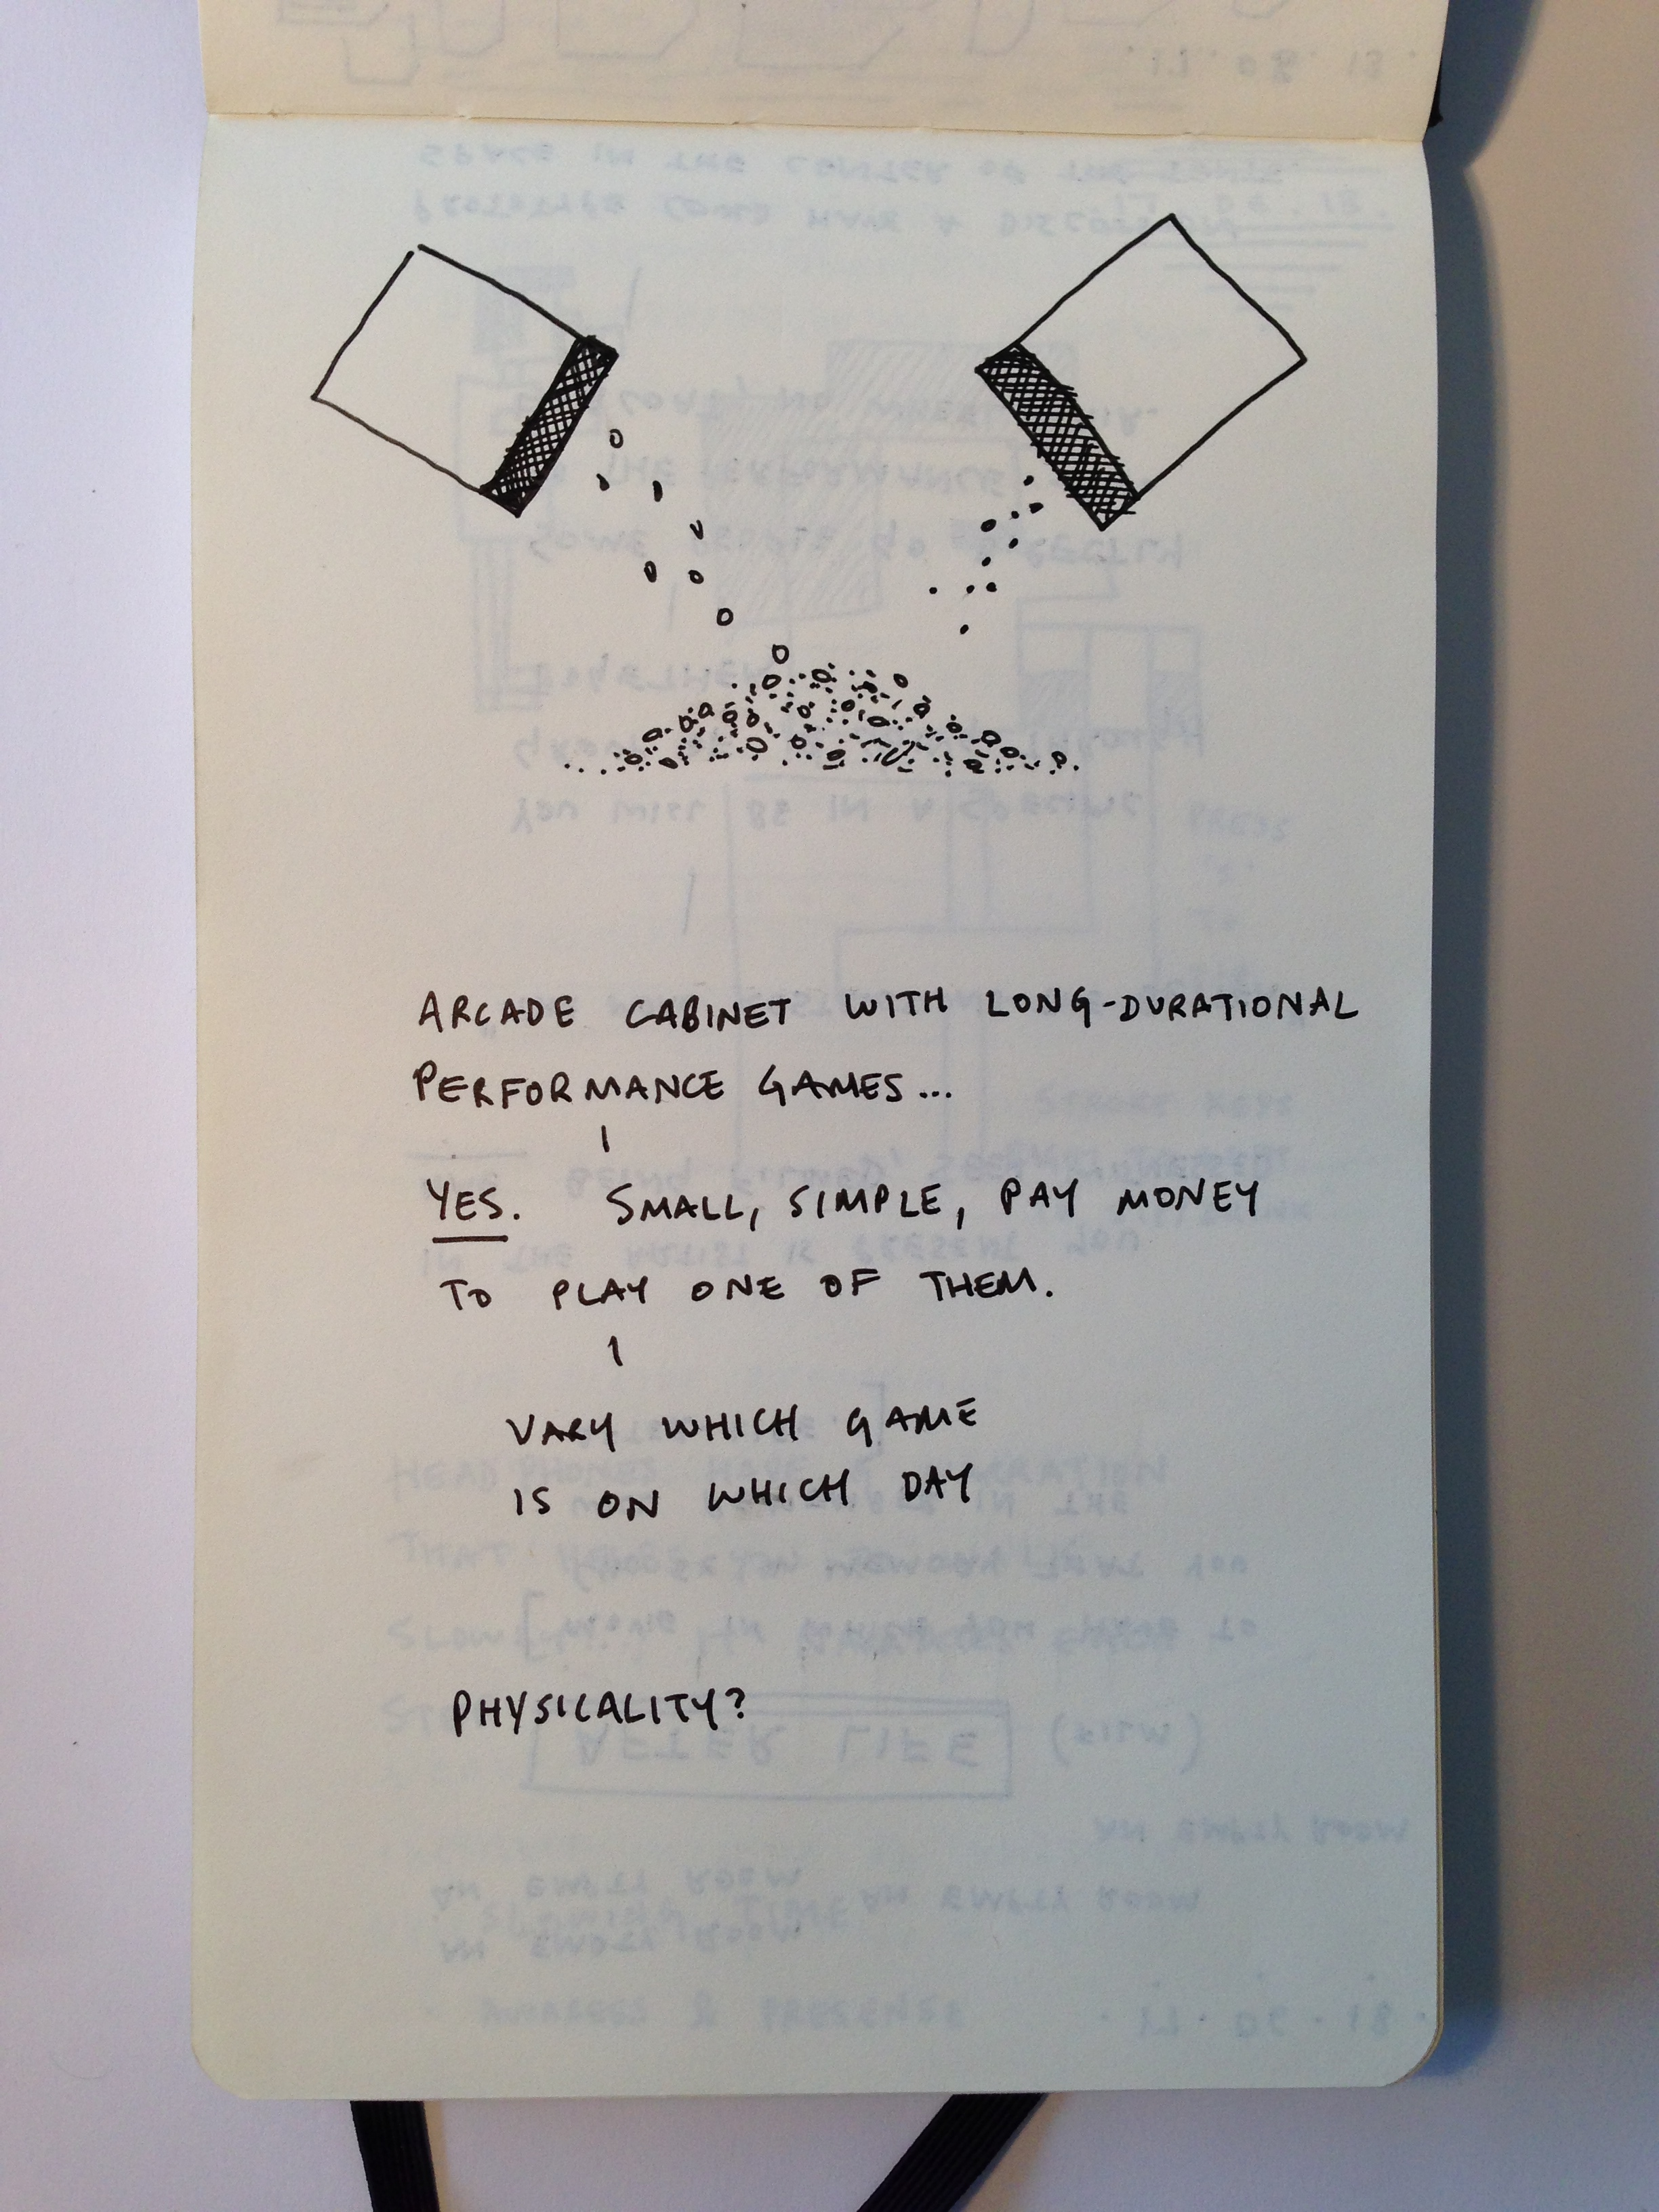 ARCADE CABINET WITH LONG-DURATIONAL
PERFORMANCE GAMES...
YES. SMALL, SIMPLE, PAY MONEY
TO PLAY ONE OF THEM.
VARY WHICH GAME
IS ON WHICH DAY
PHYSICALITY?